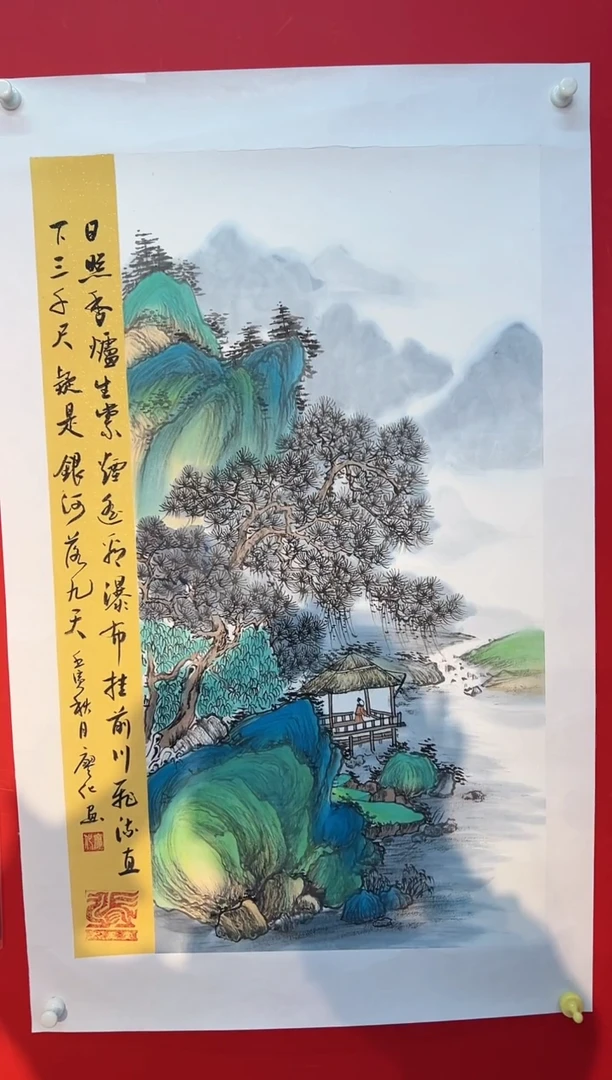 日照香爐生紫煙遙看瀑布挂前川飛流直
下三千尺疑是銀河落九天
壬寅秋月廖化画